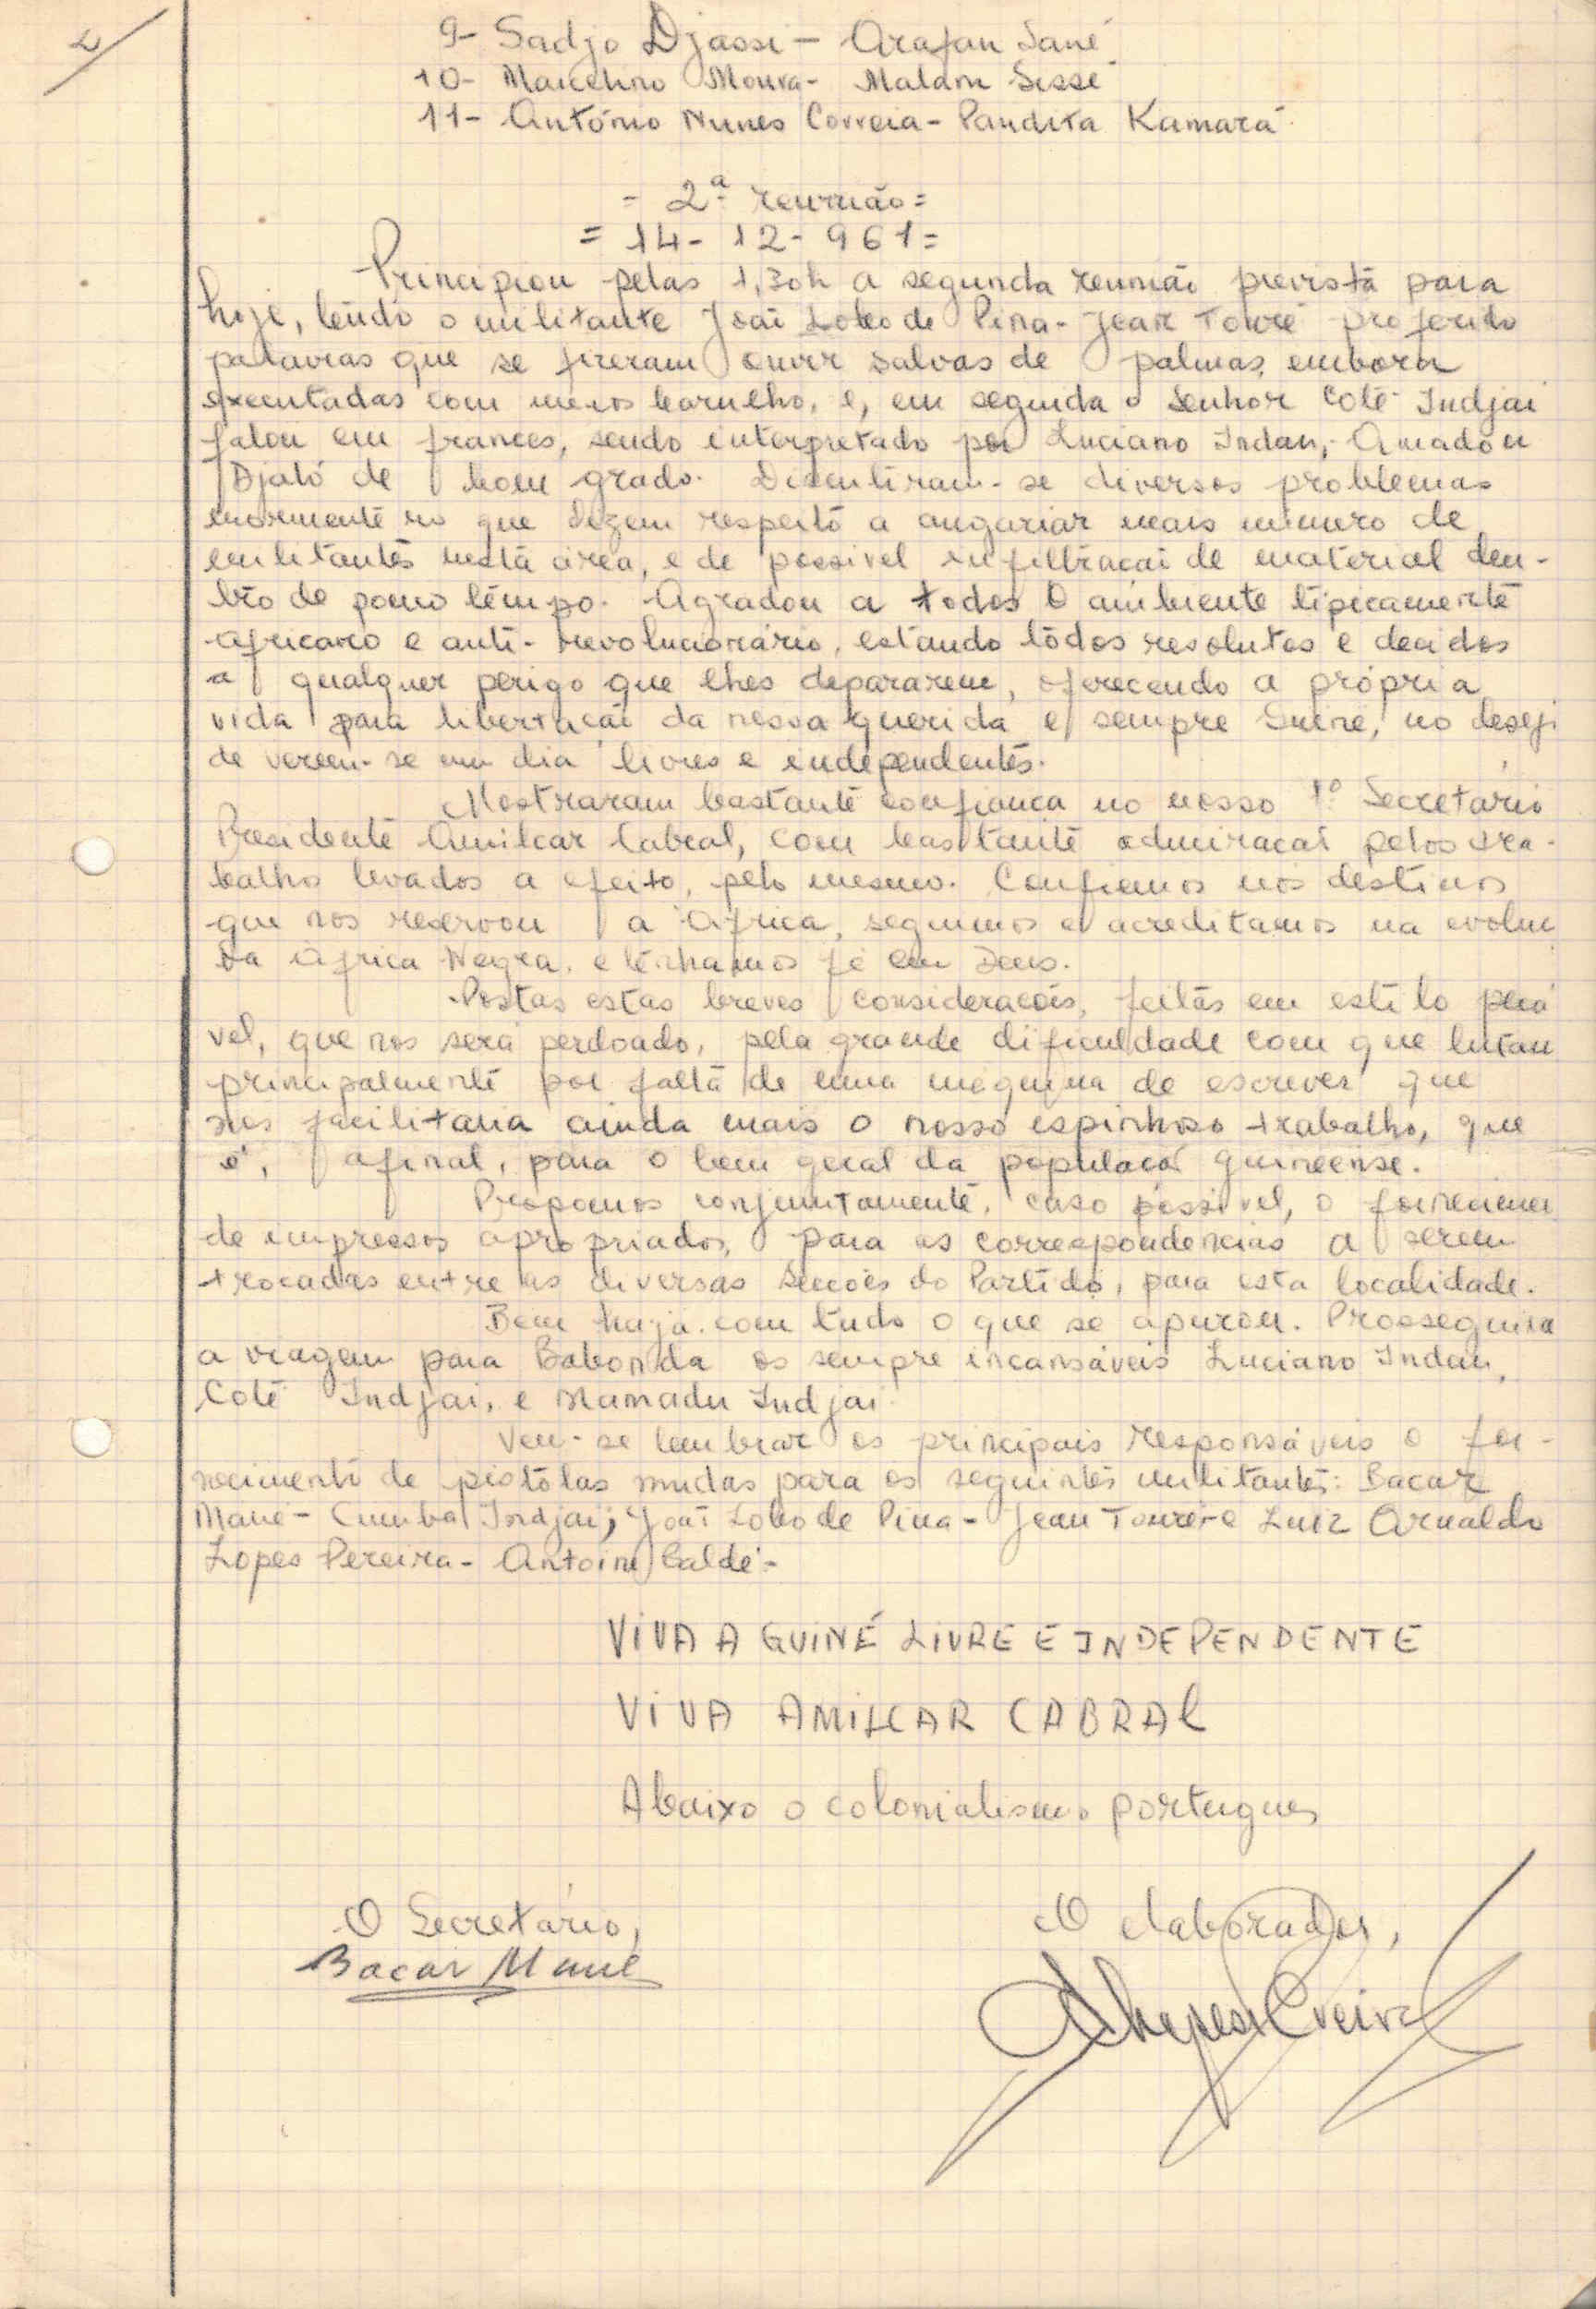 2
9- Sadjo Djassi - Arafan Sané
10- Marcelino Moura- Malam Sissé
11- António Nunes Correia- Pandita Kamará
- 2ª reunião =
= 14- 12- 961 =
Principiou pelas 1,30h a segunda reunião prevista para
hoje, tendo o militante João Lobo de Pina- Jean Touré proferido
palavras que se fizeram ouvir salvas de palmas, embora
executadas com menos barulho, e, em seguida o Senhor Coté Indjai
falou em frances, sendo interpretado por Luciano Indan,- Amadou
Djaló de bom grado. Discutiram-se diversos problemas
mormente no que dizem respeito a angariar mais numero de
militantes nesta área, e de possivel infiltração de material den-
tro de pouco tempo. Agradou a todos o ambiente tipicamente
africano e anti-revolucionário, estando todos resolutos e decidos
a qualquer perigo que lhes depararem, oferecendo a própria
vida para libertação da nossa querida e sempre Guiné, no desejo
de verem-se um dia livres e independentes.
Mostraram bastante confiança no nosso 1º Secretário
Presidente Amilcar Cabral, com bastante admiração pelos tra-
balho levados a efeito, pelo mesmo. Confiamos nos destinos
que nos reservou a Africa, seguimos e acreditamos na evoluç
da Africa Negra, e tenhamos fé em Deus.
Postas estas breves considerações, feitas em estilo
vel, que nos será perdoado, pela grande dificuldade com que lutam
principalmente por falta de uma maquina de escrever que
nos facilitaria ainda mais o nosso espinhoso trabalho, que
é, afinal, para o bem geral da população guineense.
Propomos conjuntamente, caso possivel, o fornecimen
de impressos apropriados, para as correspondencias a serem
trocadas entre as diversas Secções do Partido, para esta localidade.
Bem haja com tudo o que se apurou. Prosseguira
a viagem para Babonda os sempre incansáveis Luciano Indan,
Coté Indjai, e Mamadu Indjai
Vem-se lembrar os principais responsáveis o for-
necimento de pistolas mudas para os seguintes militantes: Bacar
Mané- Cumba Indjai; João Lobo de Pina- Jean Touré e Luiz Arnaldo
Lopes Pereira- Antoine Baldé-
VIVA A GUINÉ LIVRE E INDEPENDENTE
VIVA AMILCAR CABRAL
Abaixo o colonialismo portugues
O Secretário,
Bacar Mané
O elaborador,